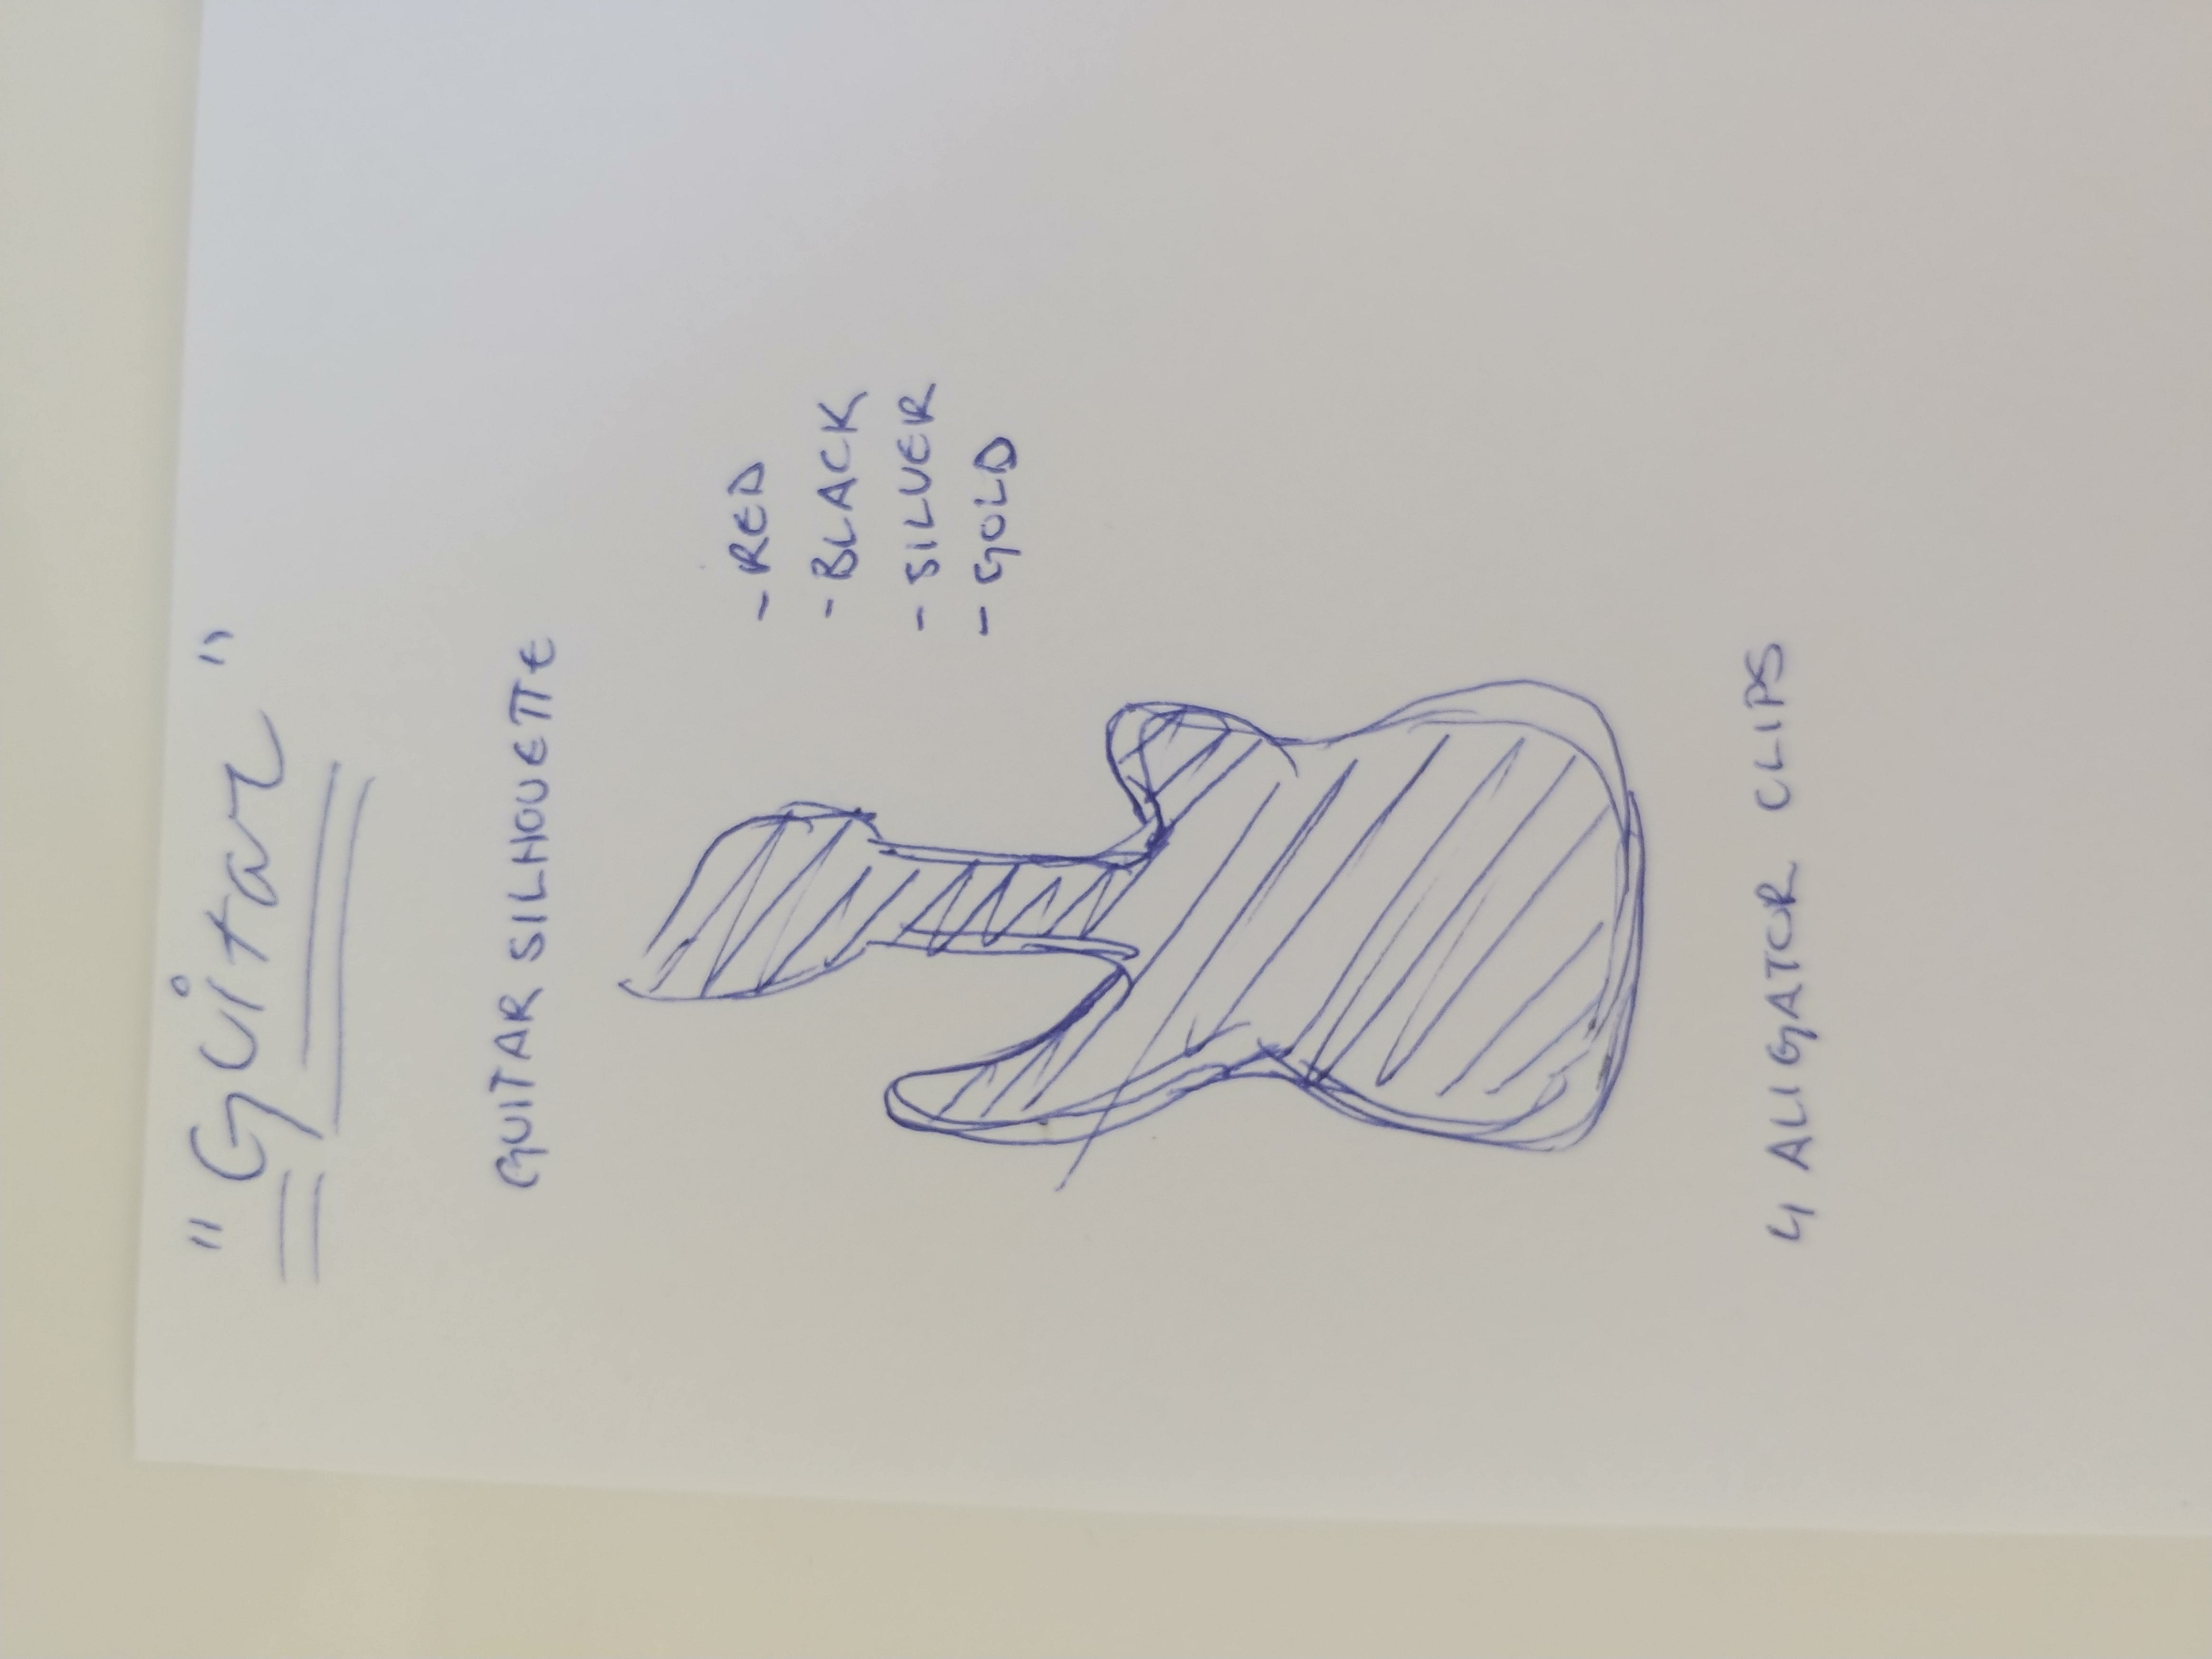 "Guitar"
GUITAR SILHOUETTE
- RED
- BLACK
- SILVER
- GOLD
4 ALIGATOR CLIPS